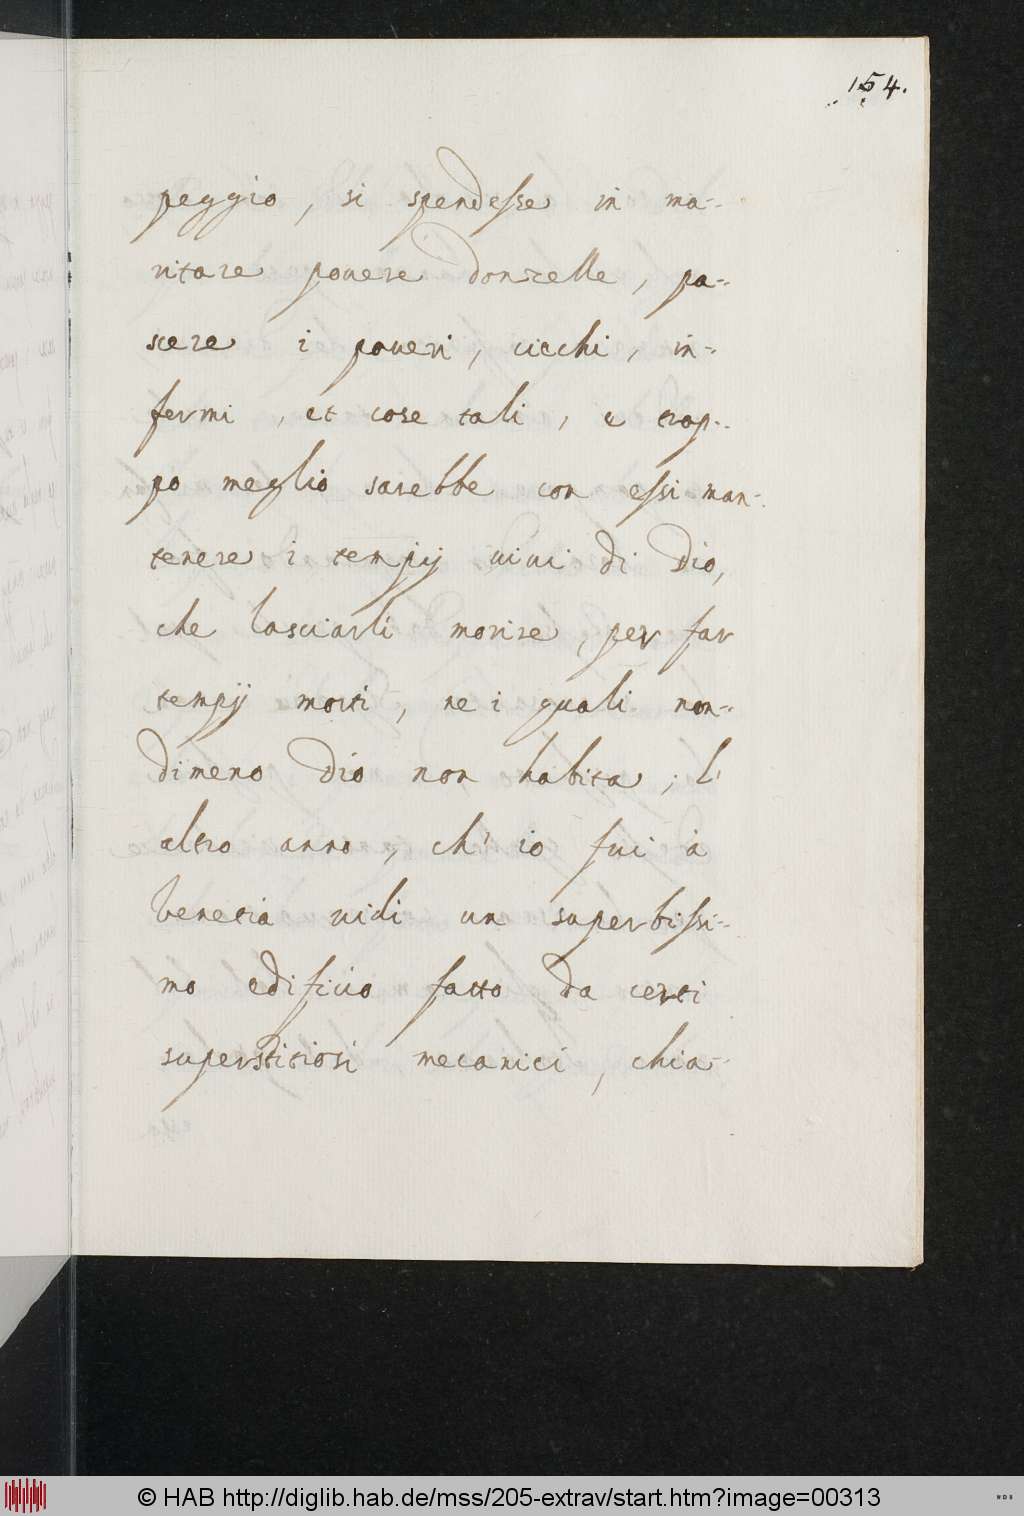 154.
peggio, si spendesse in ma-
ritare povere donzelle, pa-
scere i poveri, ciechi, in-
fermi, et cose tali, e trop-
po meglio sarebbe con essi man-
tenere i tempij vivi di Dio,
che lasciarli morire, per far
tempij morti, ne i quali non-
dimeno Dio non habita; l'
altro anno, ch' io fui à
Venetia vidi un superbissi-
mo edificio fatto da certi
superstitiosi mecanici, chia-
© HAB http://diglib.hab.de/mss/205-extrav/start.htm?image=00313